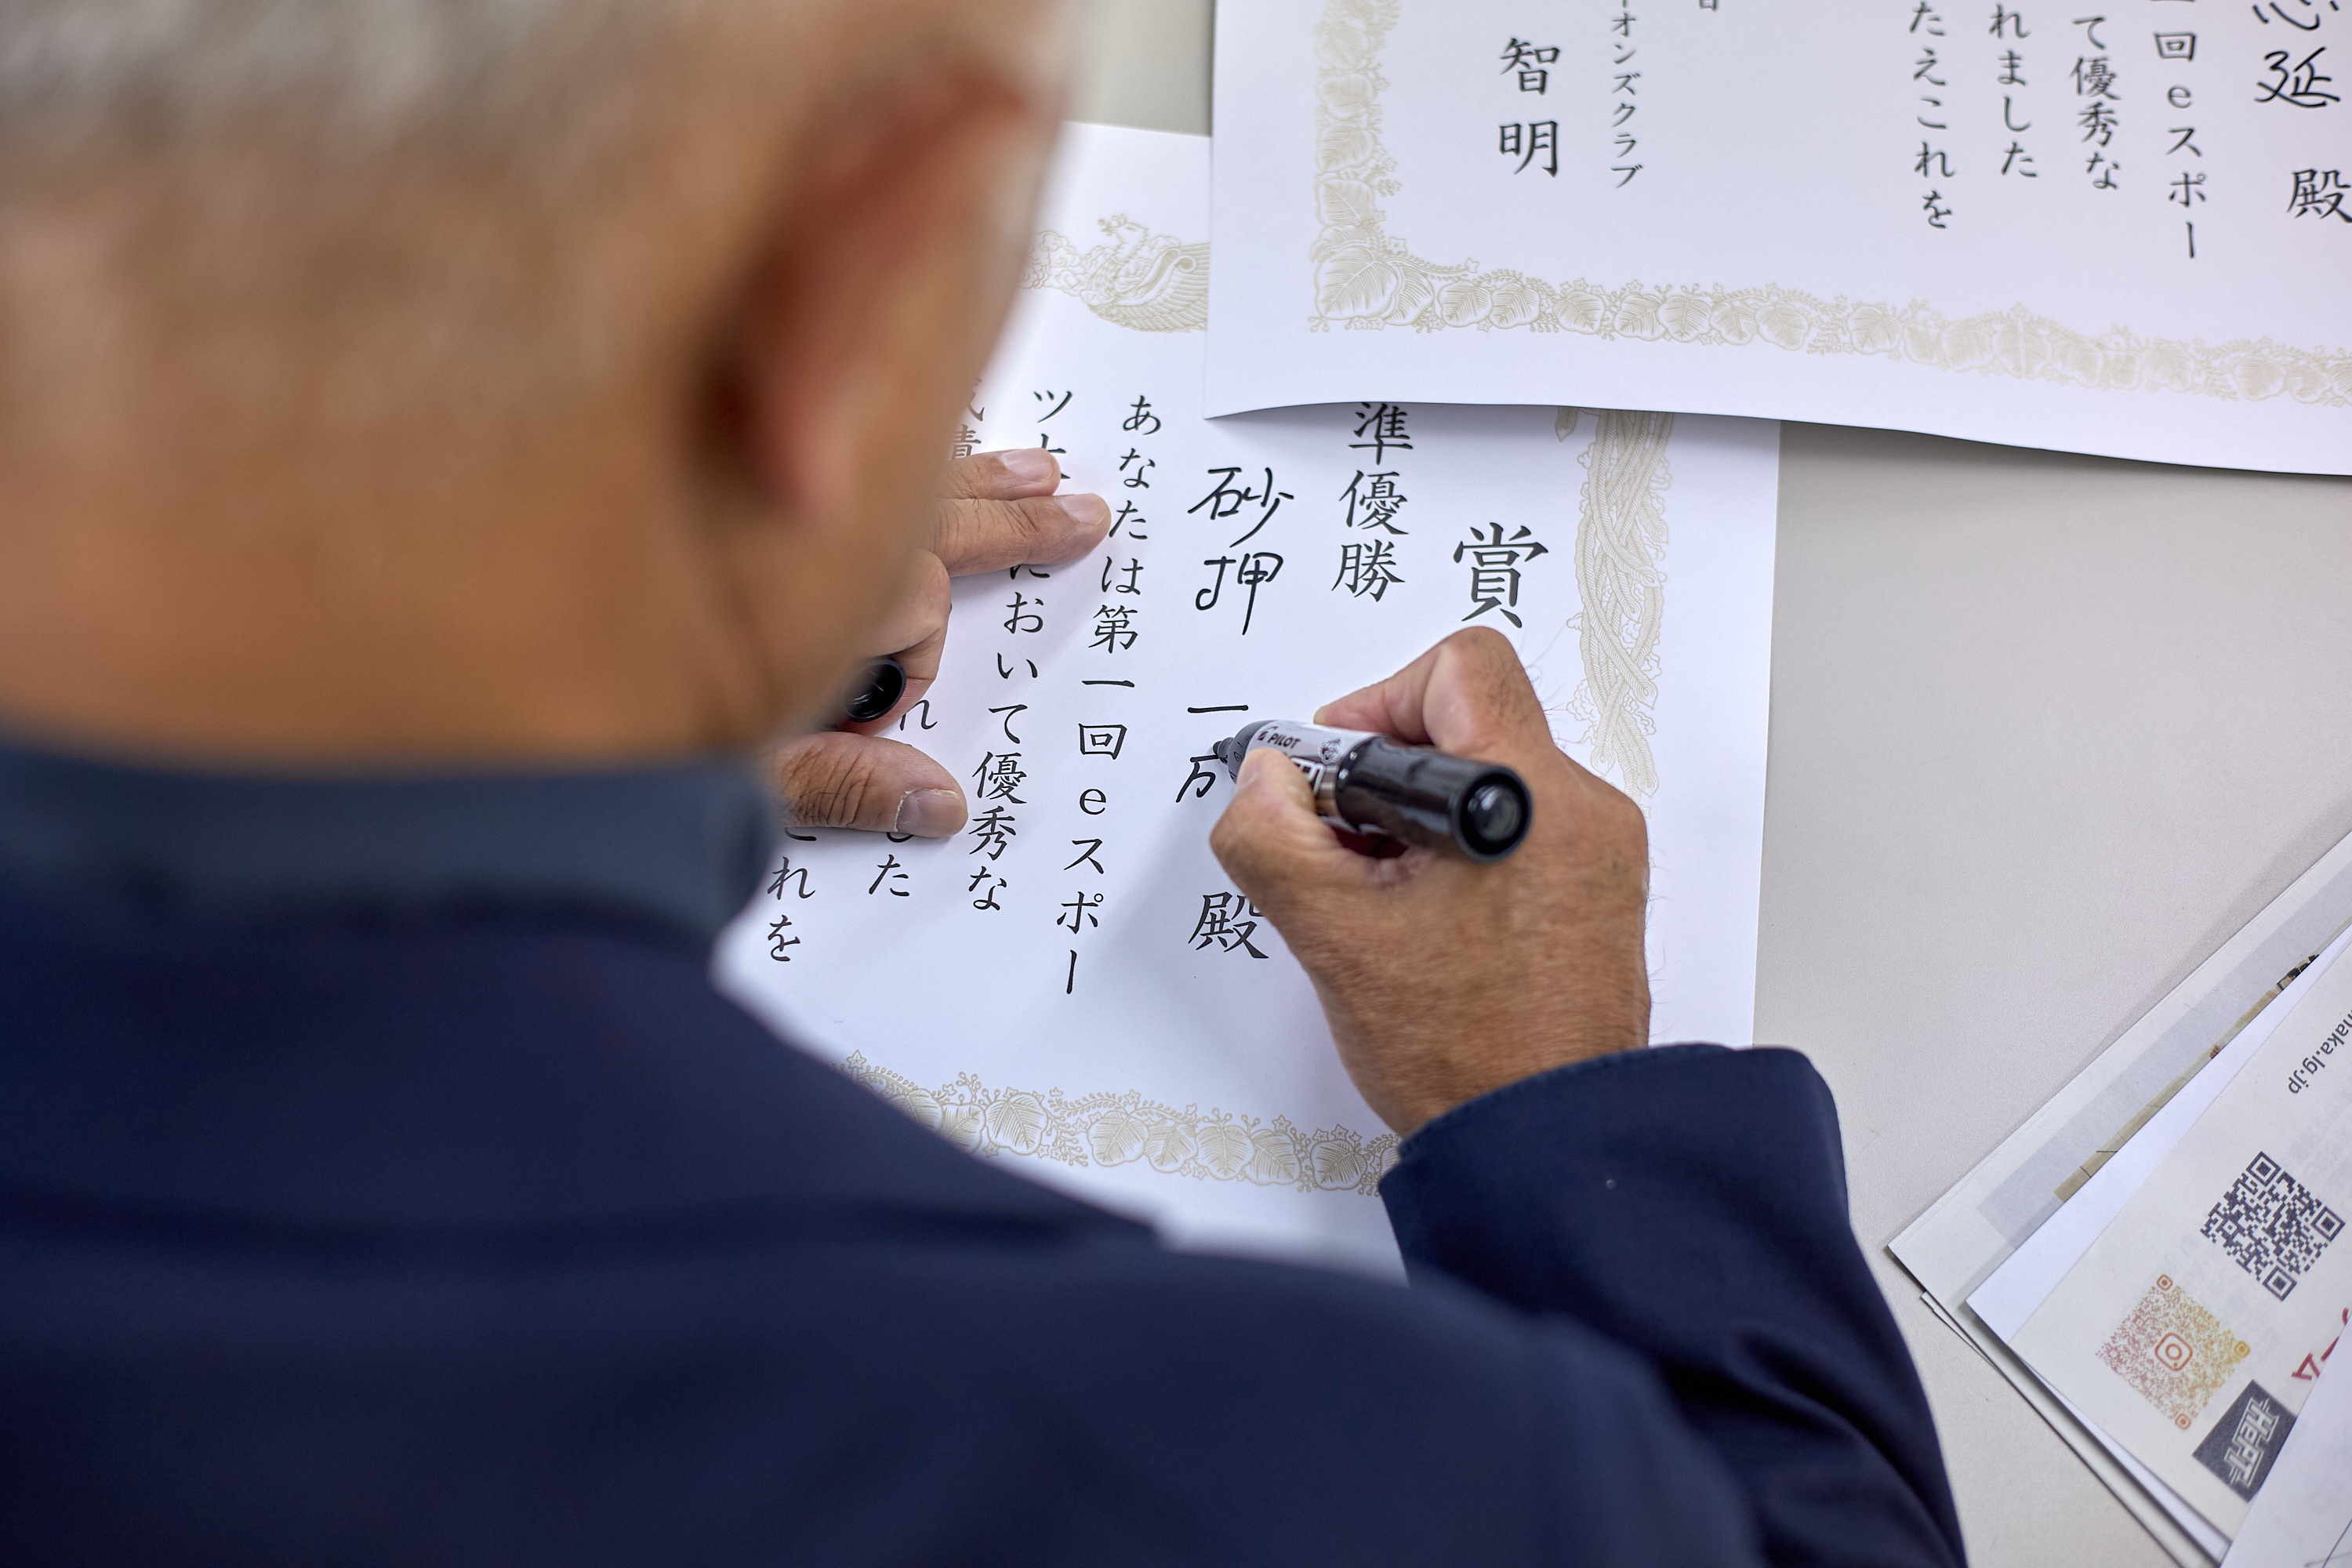 賞
準優勝
砂押 一 殿
あなたは第一回eスポー
ツ
おいて優秀な
した
これを
延 殿
回eスポー
て優秀な
れました
たえこれを
オンズクラブ
智明
PILOT
naka.lg.jp